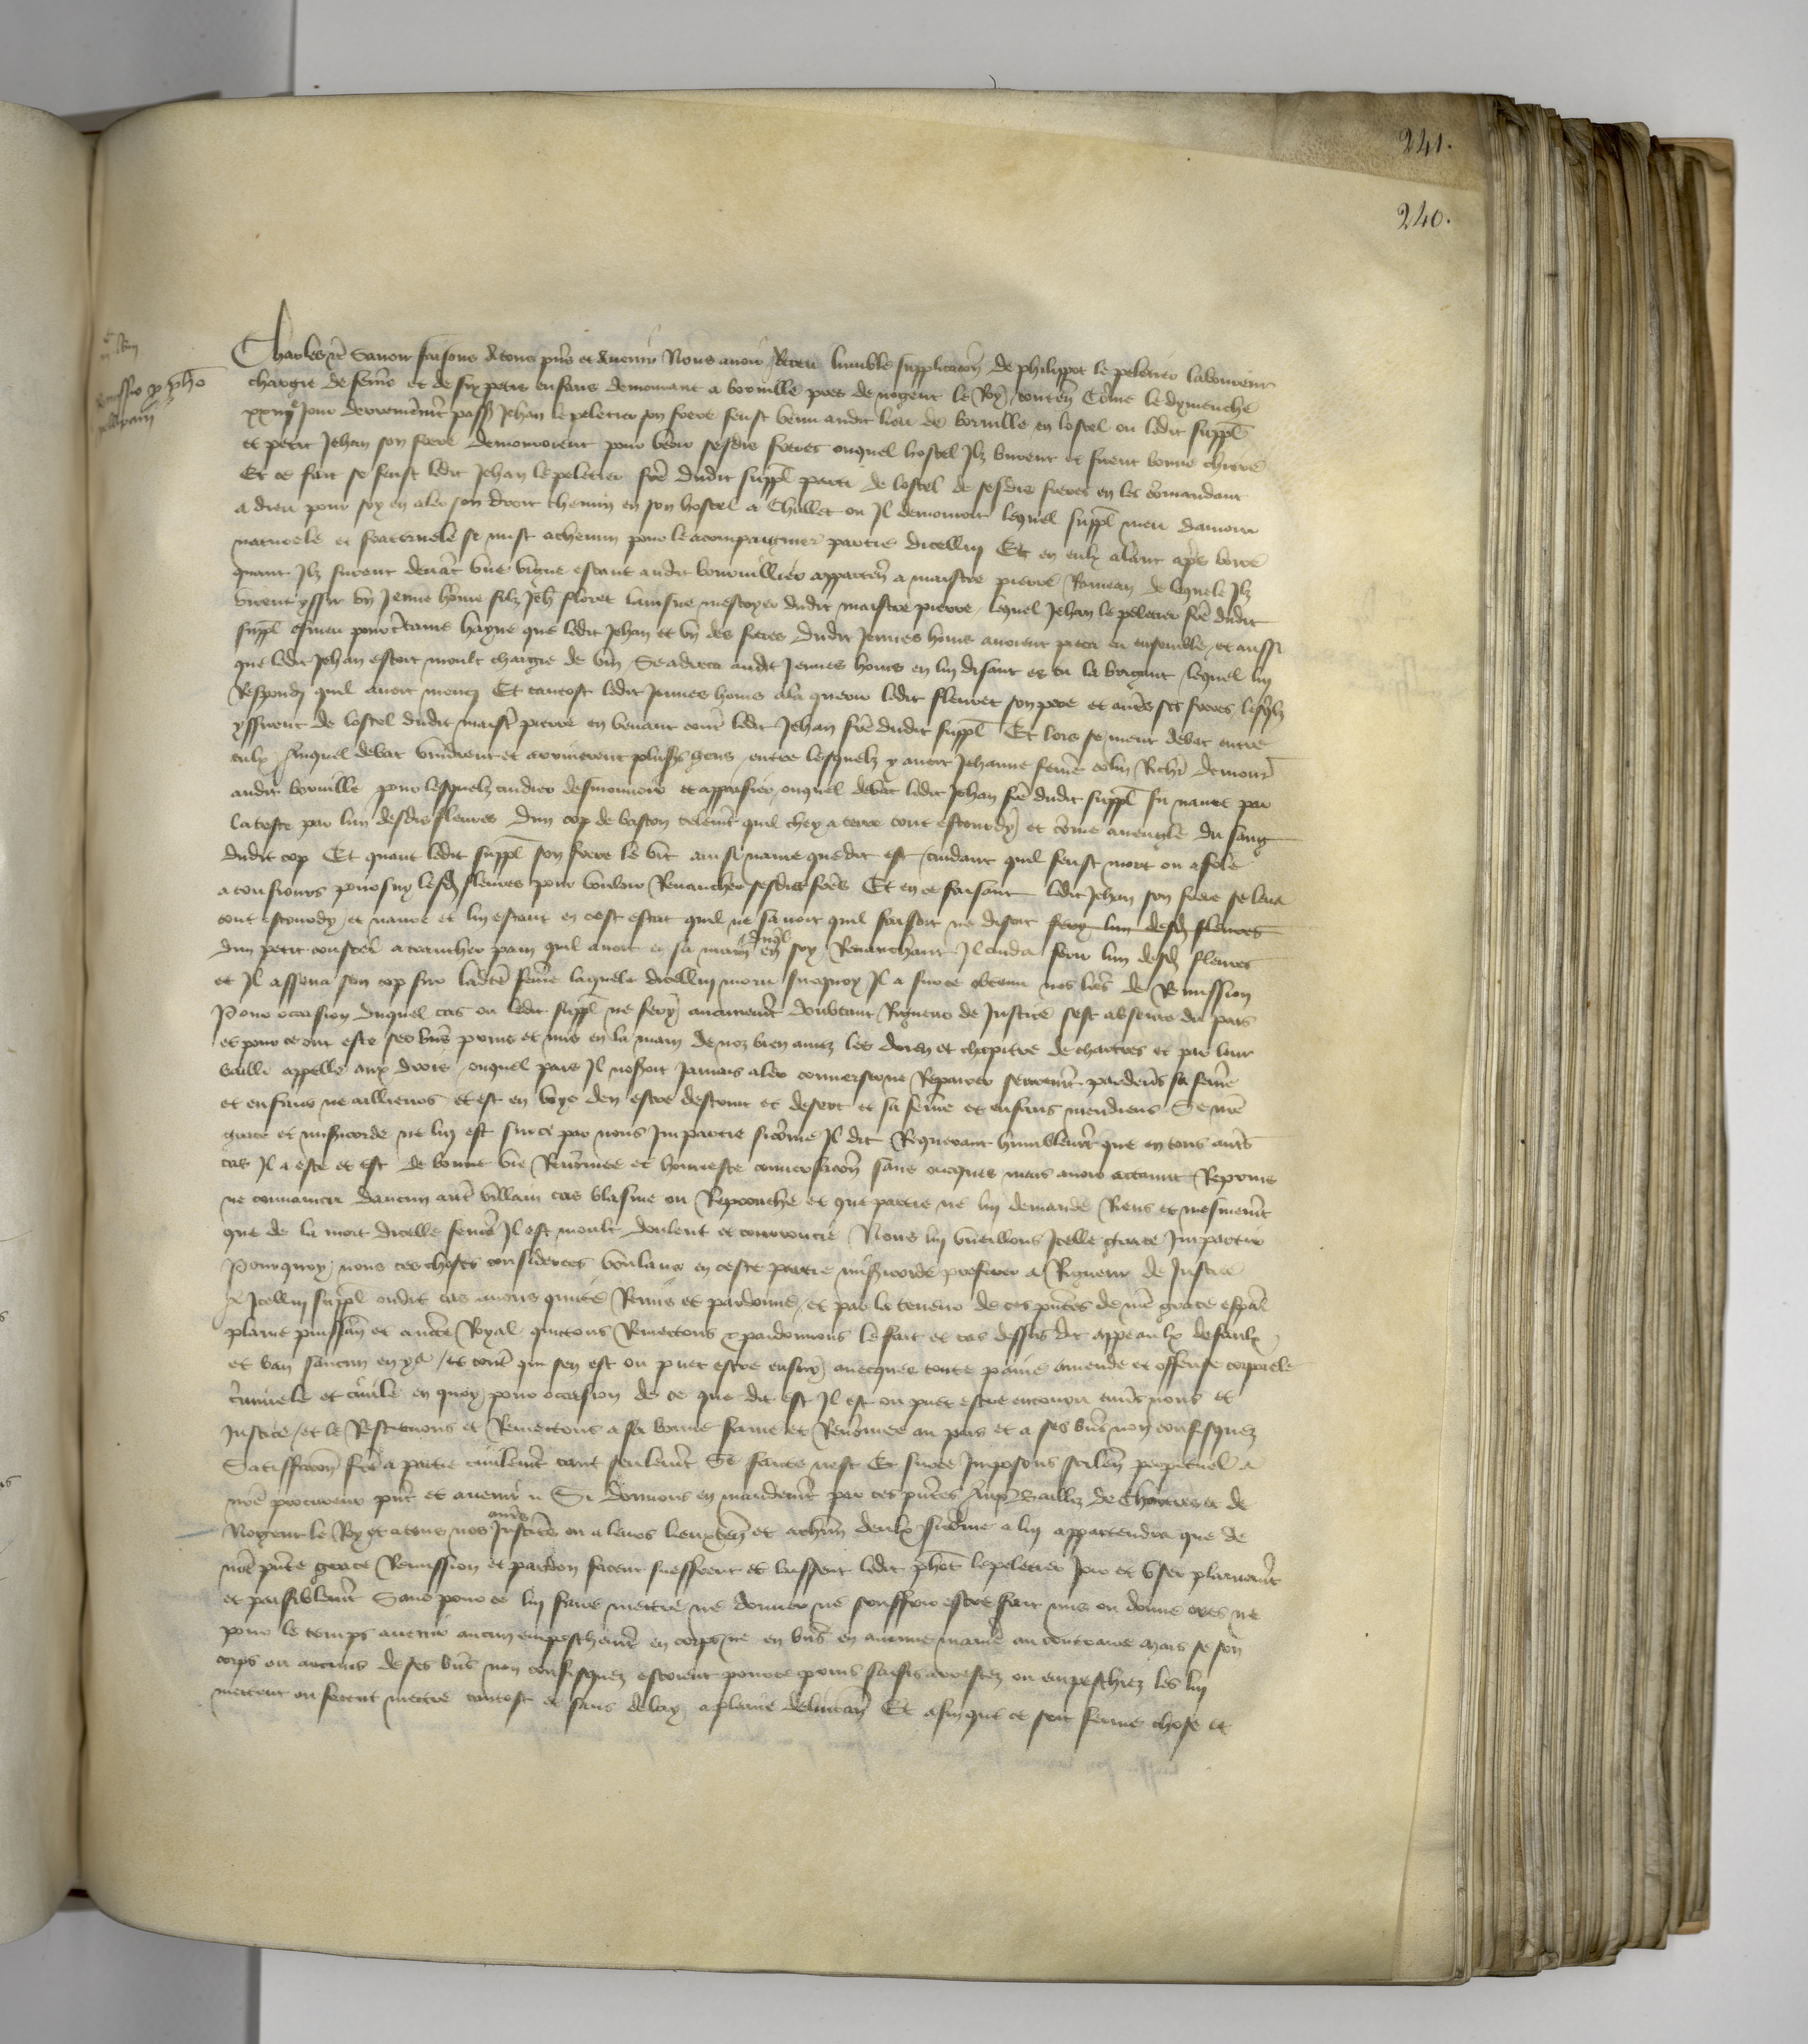 241.
240.
Remissio p̱ ph̄o
Charles rc̄ Savoir faisons a tous pn̄s et avenir Nous avoir Receu lumble supplicacōn de philippot le peletier laboureur
chargie de fem̄e et de six petis enfans demourant a borville pres de nogent le Roy contenā Cōme le dymenche
xxiiijᵉ jour derrenierem̄t passe Jehan le peletier son frere feust venu audit lieu de borville en lostel ou ledit suppl̄
et petit Jehan son frere demouroient pour veoir sesdis freres ouquel hostel Ilz burent et firent bonne chiere
Et ce fait se feust ledit Jehan le peletier frē dudit suppl̄ parti de lostel de sesdis freres en les cōmandant
a dieu pour soy en aler son droit chemin en son hostel a Challet ou Il demouroit lequel suppl̄ meu damour
naturele et fraternele se mist achemin pour le acompaignier partie dicellui Et en eulx alant apēs boire
quant Ilz furent devāt une vigne estant audit borvillier appartenā a maistre pierre Rameau de laquele Ilz
virent yssir un Jeune hōme filz Jeh̄ floret mestoyer dudit maistre pierre lequel Jehan le peletier frē dudit
suppl̄ esmeu pour c̄taine hayne que ledit Jehan et un des freres dudit Jeunes homs avoient pieca eu ensemble et aussi
que ledit Jehan estoit moult chargie de vin Se adreca audit Jeunes homs en lui disant es tu la brigant lequel lui
Respondi quil avoit menti Et tantost ledit Jeunes homs ala querir ledit fleuret son pere et autrēs ses freres lesqlz
yssirent de lostel dudit maistr̄ pierre en venant contr̄ ledit Jehan frē dudit suppl̄ Et lors se meut debat entre
eulx Auquel debat vindrent et arriverent plusrs̄ gens entre lesquelz y avoit Jehanne fem̄e colin Rich̄ demour̄
audit borville pour lesquelz cuidier desmouvoir et appaisier ouquel debat ledit Jehan frē dudit suppl̄ fu navre par
la teste par lun desdis fleures dun cop de baston telem̄t quil chey a terre tout estourdy et cōme aveugle du sang
dudit cop Et quant ledit suppl̄ son frere le vit ainsi navre que dit est cuidant quil feust mort ou afole
a tousiours poursuy lesd̄ fleures pour vouloir Revancher sesdis frēs Et en ce faisant ledit Jehan son frere se leva
tout estourdy et navre et lui estant en cest estat quil ne savoit quil faisoit ne disoit fery lun desd̄ fleures
dun petit coustel a trancher pain quil avoit en sa main duql̄ en soy Revanchant Il cuida ferir lun desd̄ fleures
et Il assena son cop sur ladicte fem̄e laquele dicellui morut surquoy Il a sur ce obtenu nos lr̄es de Remission
Pour occasion duquel cas ou ledit suppl̄ ne fery aucunem̄t doubtant Rigueur de Justice sest absente du pais
et pour ce ont este ses biēs prins et mis en la main de noz bien amez les doyen et chapitre de chartres et par leur
bailli appelle aux drois ouquel pais Il noseroit Jamais aler converser ne Reparer seurem̄t pardevs̄ sa fem̄e
et enfans ne ailleurs et est en voye den estre destruit et desert et sa fem̄e et enfans mendiens Se nrē
grace et misericorde ne lui est sur ce par nous Impartie sicōme Il dit Requerant humblem̄t que en tous autrēs
cas Il a este et est de bonne vie Renōmee et honneste conversacōn sans oncques mais avoir actaint Reprins
ne convaincu daucun autrē villain cas blasme ou Reprouche et que partie ne lui demande Riens et mesmem̄t
que de la mort dicelle fem̄e Il est moult doulent et courroucie Nous lui vueillons Icelle grace Impartir
Pourquoy nous ces choses considerees voulans en ceste partie misericorde preferer a Rigueur de Justice
A Icellui suppl̄ oudit cas avons quicte Remis et pardonne et par la teneur de ces pn̄tes de nrē grace espāl
plaine puissān et auctē Royal quictons Remettons & pardonnons le fait et cas dessus dit appeaulx defaulx
et ban saucun en y a et tout qui sen est ou puet estre ensuy avecques toute paine amende et offense corporele
criminele et civile en quoy pour occasion de ce que dit est Il est ou puet estre encouru envs̄ nous et
Justice et le Restituons et Remettons a sa bonne fame et Renōmee au pais et a ses biēs non confisquez
Satisfacōn fcē a partie civilem̄t tant seulem̄t Se faicte nest Et sur ce Imposons scilen̄ perpetuel a
nrē procureur pn̄t et avenir Si donnons en mandem̄t par ces pn̄tes Aux Bailliz de Chartres et de
Nogent le Roy et a tous nos autrēs Justicrs̄ ou a leurs lieuxten̄ et a chūn deulx sicōme a lui appartendra que de
nrē pn̄te grace Remission et pardon facent sueffrent et laissent ledit ph̄ot lepeletier Joir et user plainem̄t
et paisiblem̄t Sans pour ce lui faire mettre ne donner ne souffrir estre fait mis ou donne ores ne
pour le temps avenir aucun empeschem̄t en corps ne en biēs en aucune maniē au contraire mais se son
corps ou aucuns de ses biēs non confisquez estoient pour ce prins saisis arrestez ou empeschiez les lui
mettent ou facent mettre tantost et sans delay a plaine delivrān Et afin que ce soit ferme chose et